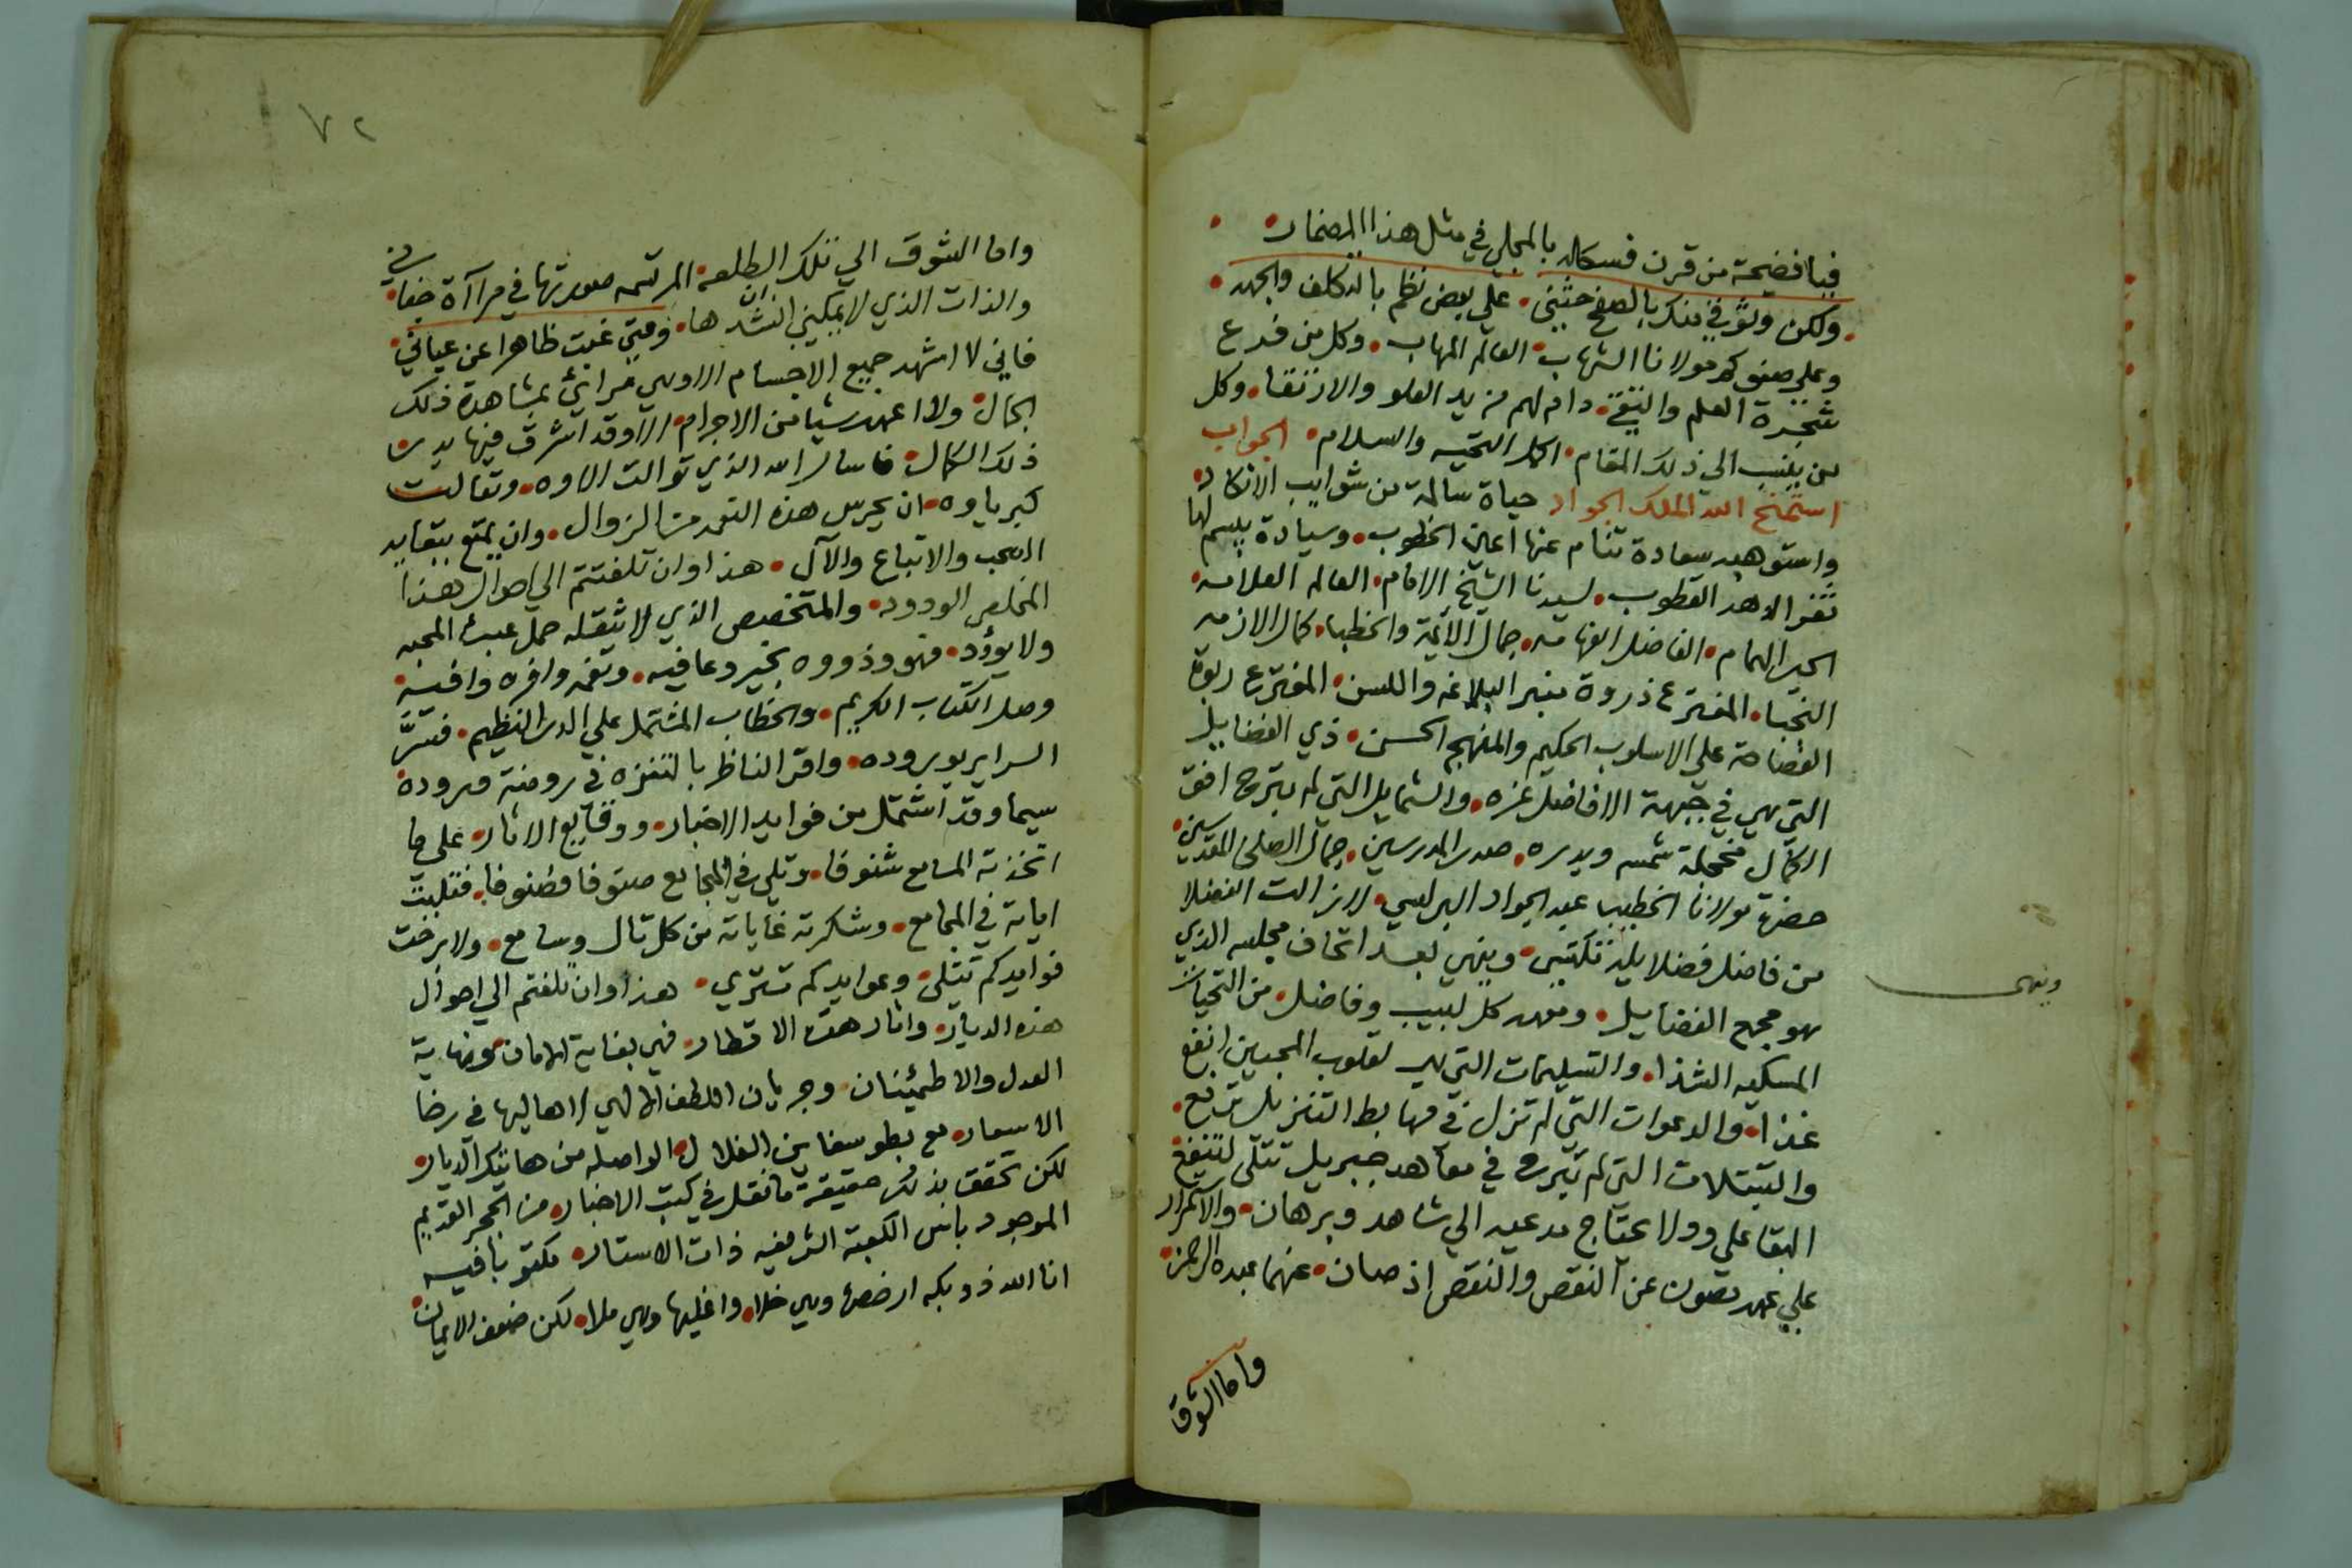 فيا فضيحة من قرن فسكله بالمجلي في مثل هذا المضمار
ولكن وثوقي منك بالصفح حثني على بعض نظم بالتكلف والجهد
وعلى صنوكم مولانا الشهاب العالم المهاب وكل من فرع
شجرة العلم والتقى دام لهم مزيد العلو والارتقا وكل
من ينسب الى ذلك المقام اكمل التحيه والسلام الجواب
استمنح الله الملك الجواد حياة سالمة من شوايب الانكاد
واستوهبه سعادة تنام عنها اعين الخطوب وسيادة يبسم لها
ثغر الدهر القطوب لسيدنا الشيخ الامام العالم العلامه
الحبر الهمام الفاضل الفهامه جمال الائمة والخطبا كمال الازمه
النجبا المفترع ذروة منبر البلاغه واللسن المفترع ربوة
الفصاحة على الاسلوب الحكيم والمنهج الحسن ذي الفضايل
التي هي في جبهة الافاضل غره والشمايل التي لم يبرح افق
الكمال شمسه وبدره صدر المدرسين جمال الصلحا المقدسين
حضرة مولانا الخطيب عبد الجواد البرلسي لازالت الفضلا
من فاضل فضلا يله تكتسي وينهي بعد اتحاف مجلسه الذي
هو مجمع الفضايل ومعهد كل لبيب وفاضل من التحيات
المسكيه الشذا والتسليمات التي هي لقلوب المحبين انفع
غذا والدعوات التي لم تزل في مهابط التنزيل ترفع
والتبتلات التي لم تبرح في معاهد جبريل تتلى لتنفع
البقا على وولا يحتاج مدعيه الي شاهد وبرهان والاستمرار
على عهد مصون عن النقص والنقض اذ صان عنهما عبده الرحمن
وينهي
واما الشوق
٧٢
واما الشوق الي تلك الطلعه المرتسمه صورتها في مراآة خفا في
والذات الذي لا يمكنني ان انشدها ومتى غبت ظاهرا عن عياني
فاني لا اشهد جميع الاجسام الا وهي مرائي بمشاهدة ذلك
الجمال ولا اعهد شيا من الاجرام الا وقد اشرق فيها بدر
ذلك الكمال فاسال الله الذي توالت الاوه وتعالت
كبرياوه ان يحرس هذه النعمه من الزوال وان يمتع ببقايه
الصحب والاتباع والآل هذا وان تلفتتم الي احوال هذا
المخلص الودود والمتخصص الذي لا يثقله حمل عبء المحبه
ولا يؤد فهو وذووه بخير وعافيه ونعمه وافره وافيه
وصل الكتاب الكريم والخطاب المشتمل على الدر النظيم فسر
السراير بوروده واقر الناظر بالتنزه في روضة وروده
سيما وقد اشتمل من فوايد الاخبار ووقايع الاثار على ما
اتخذته المسامع شنوفا وتلي في المجامع صنوفا فصنوفا فتليت
اياته في المجامع وشكرته غاياته من كل تال وسامع ولا برحت
فوايدكم تتلى وعوايدكم تسري هذا وان تلفتم الي احوال
هذه الديار واثار هذه الاقطار فهي بغاية الامان ونهاية
العدل والاطمئنان وجريان اللطف الالهي لاهاليها في رخا
الاسعار مع بطو سفاين الغلال الواصله من هاتيك الديار
لكن تحقق بذلك حقيقة ما نقل في كتب الاخبار من الحجر القديم
الموجود باس الكعبة الشريفه ذات الاستار مكتوبا فيه
انا الله ذو بكه ارخصها وهي خلا واغليها وهي ملا لكن ضعف الايمان